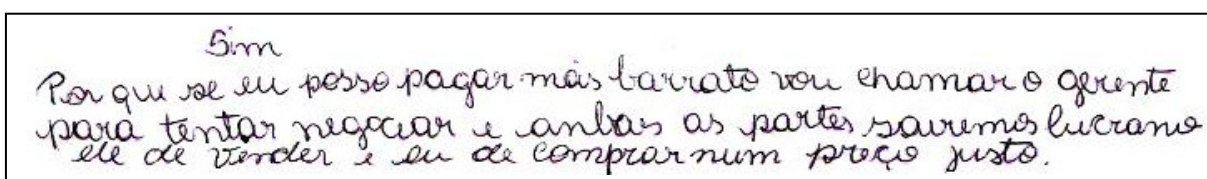 Sim
Por qui se eu posso pagar más barrato vou chamar o gerente
para tentar negociar e anbas as partes sairemos lucrano
ele de vender e eu de comprar num preço justo.